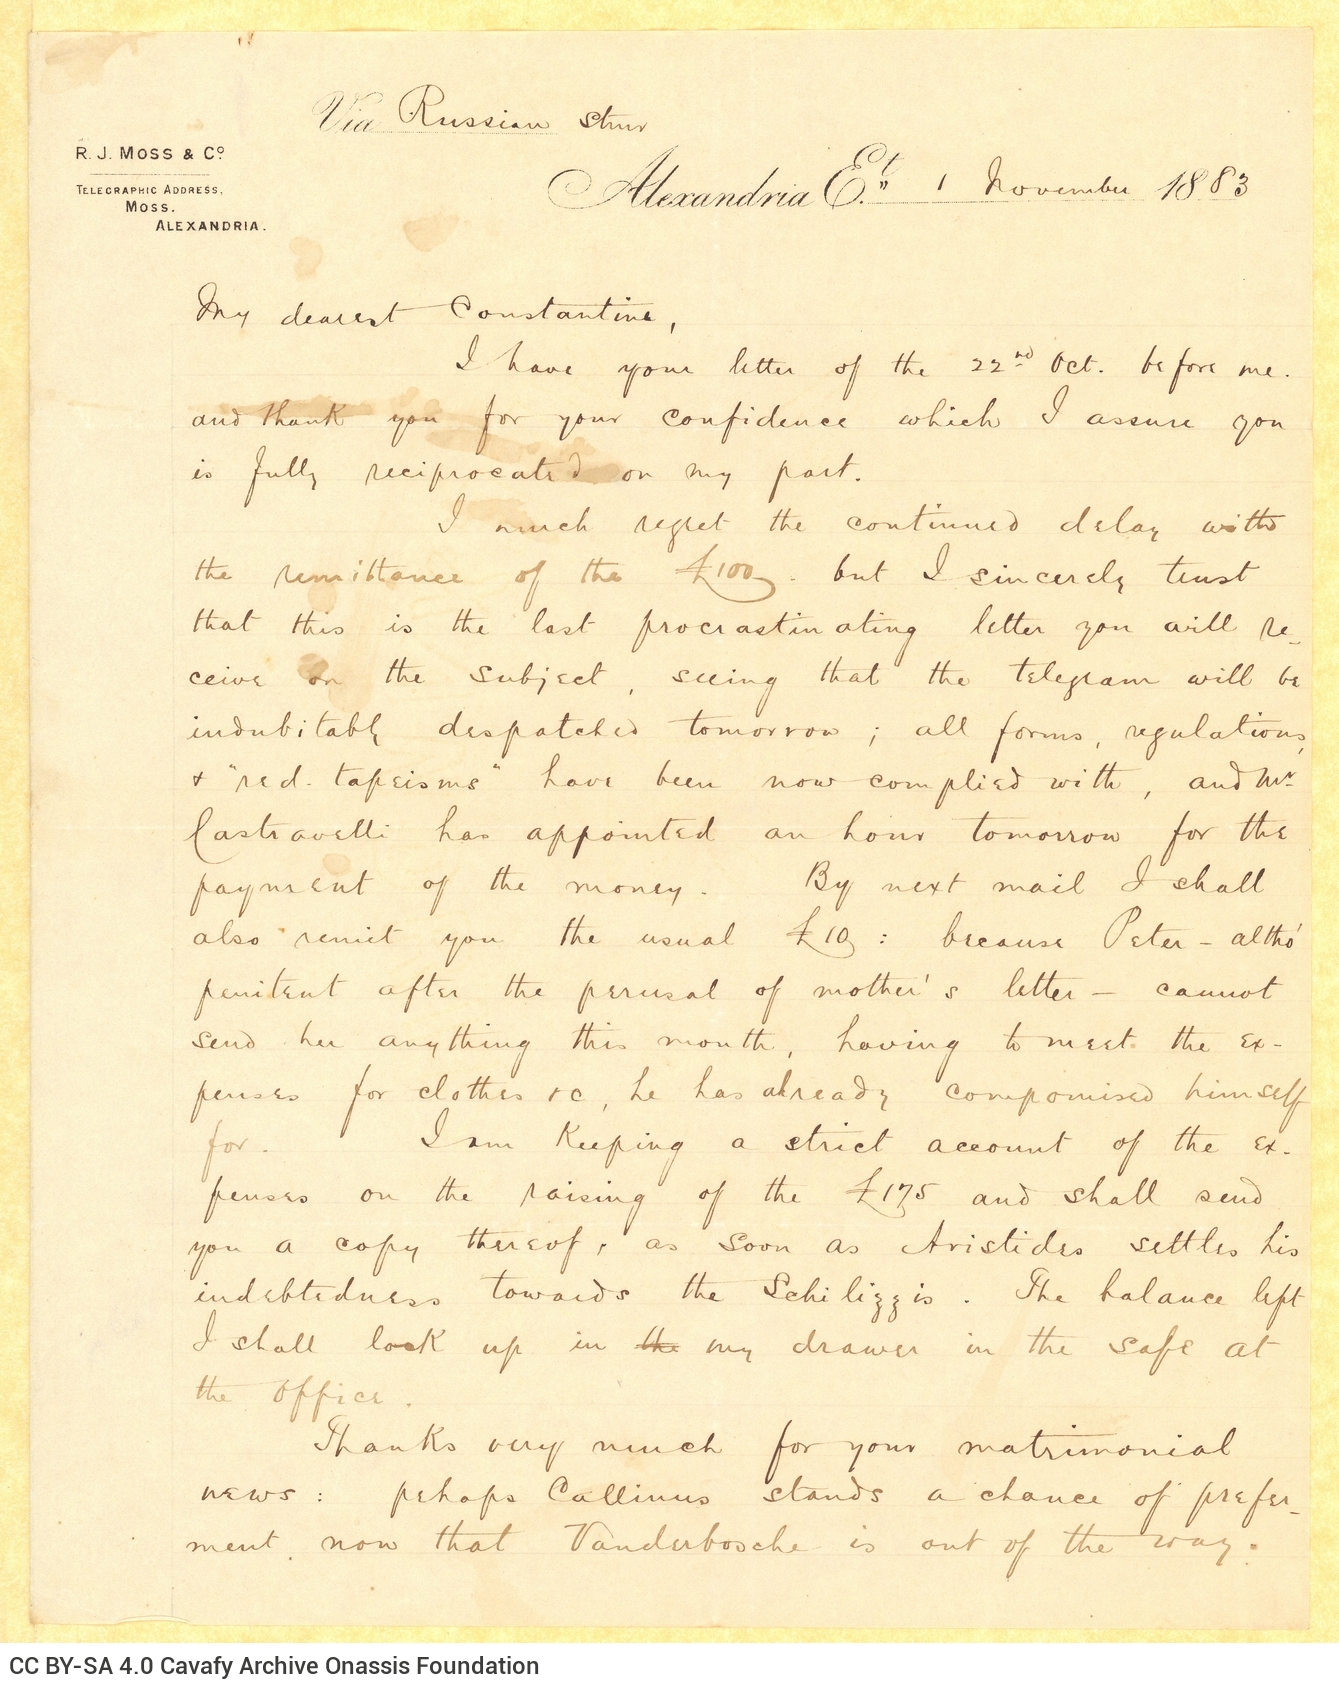 Via Russian Stmr
R. J. Moss & Co
Telegraphic Address,
Moss.
Alexandria.
Alexandria Et. 1 November 1883
My dearest Constantine,
I have your letter of the 22nd Oct. before me.
and thank you for your confidence which I assure you
is fully reciprocated on my part.
I much regret the continued delay with
the remittance of the £100. but I sincerely trust
that this is the last procrastinating letter you will re-
ceive on the subject, seeing that the telegram will be
indubitably despatched tomorrow; all forms, regulations,
& "red-tapeisms" have been now complied with, and Mr
Castravelli has appointed an hour tomorrow for the
payment of the money. By next mail I shall
also remit you the usual £10: because Peter - altho'
penitent after the perusal of mother's letter - cannot
send her anything this month, having to meet the ex-
penses for clothes &c, he has already compomised himself
for. I am keeping a strict account of the ex-
penses on the raising of the £175 and shall send
you a copy thereof, as soon as Aristides settles his
indebtedness towards the Schilizzis. The balance left
I shall lock up in the my drawer in the safe at
the office.
Thanks very much for your matrimonial
news: pehaps Callinus stands a chance of prefer-
ment, now that Vanderbosche is out of the way.
CC BY-SA 4.0 Cavafy Archive Onassis Foundation